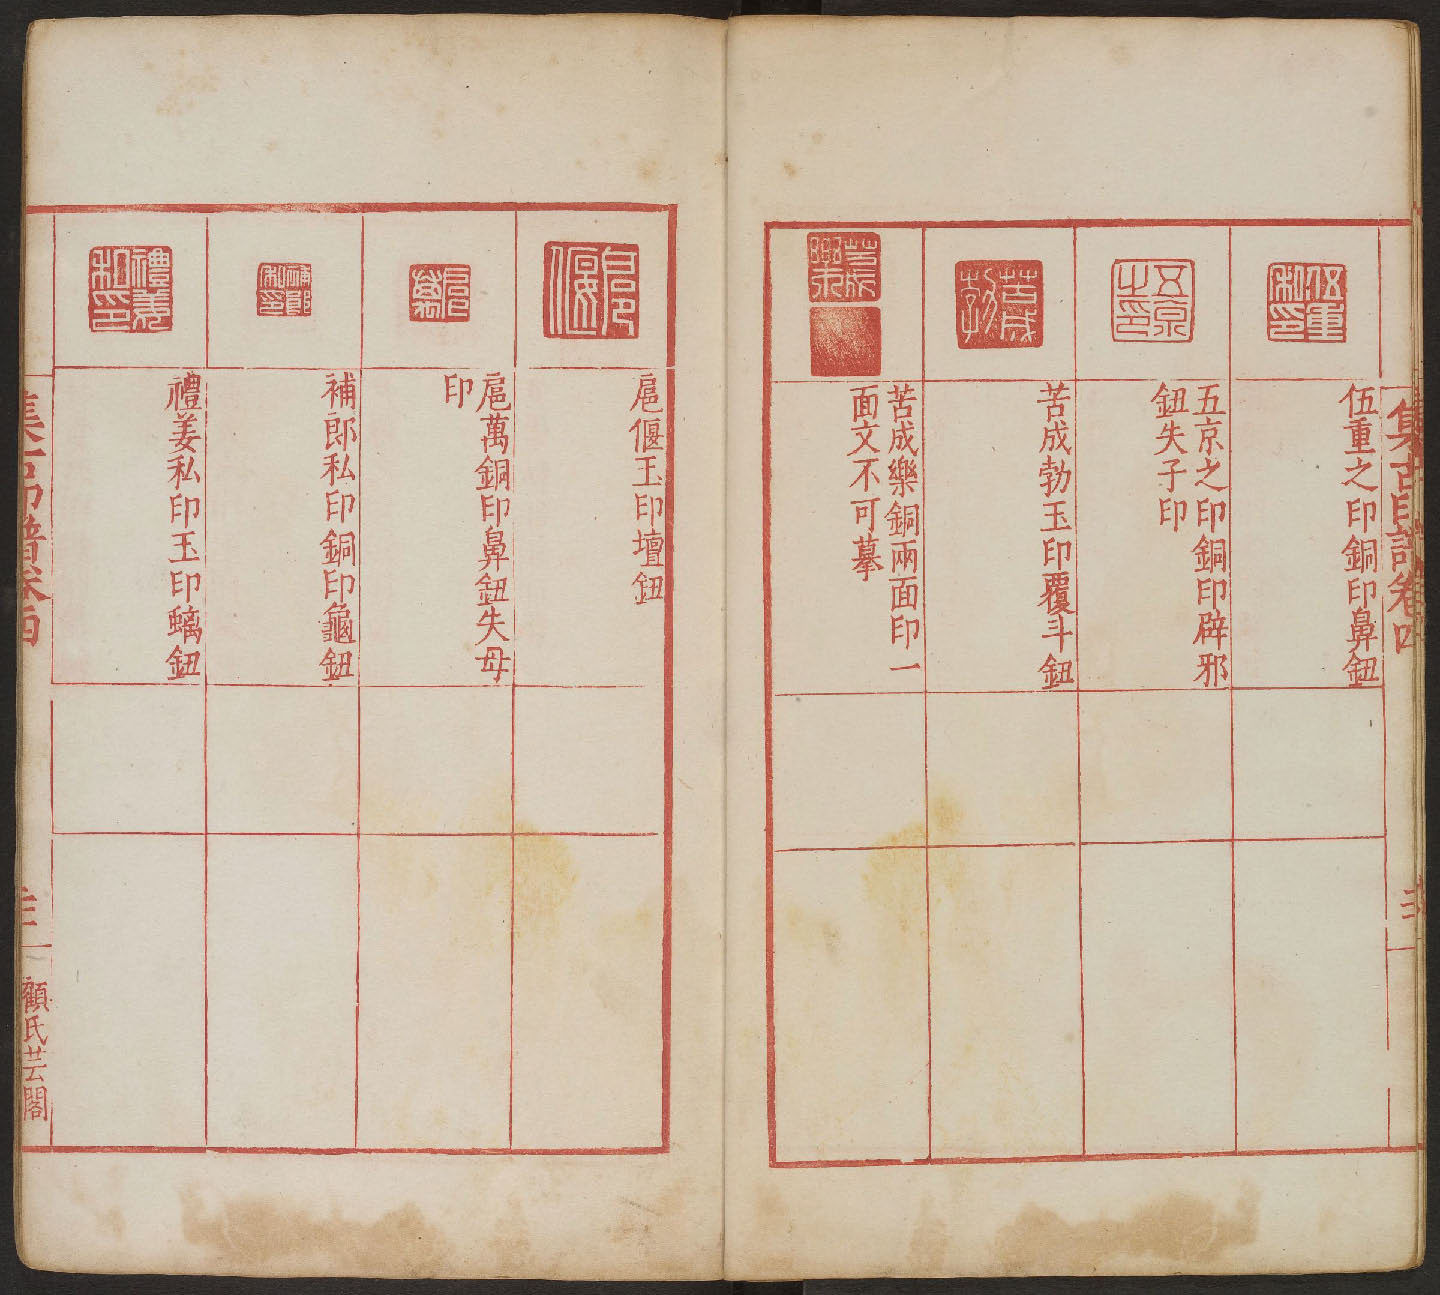 集古印譜卷四
伍重之印銅印鼻鈕
五京之印銅印辟邪
鈕失子印
苦成勃玉印覆斗鈕
苦成樂銅兩面印一
面文不可摹
扈偃玉印壇鈕
扈萬銅印鼻鈕失母
印
補郎私印銅印龜鈕
禮姜私印玉印螭鈕
顧氏芸閣